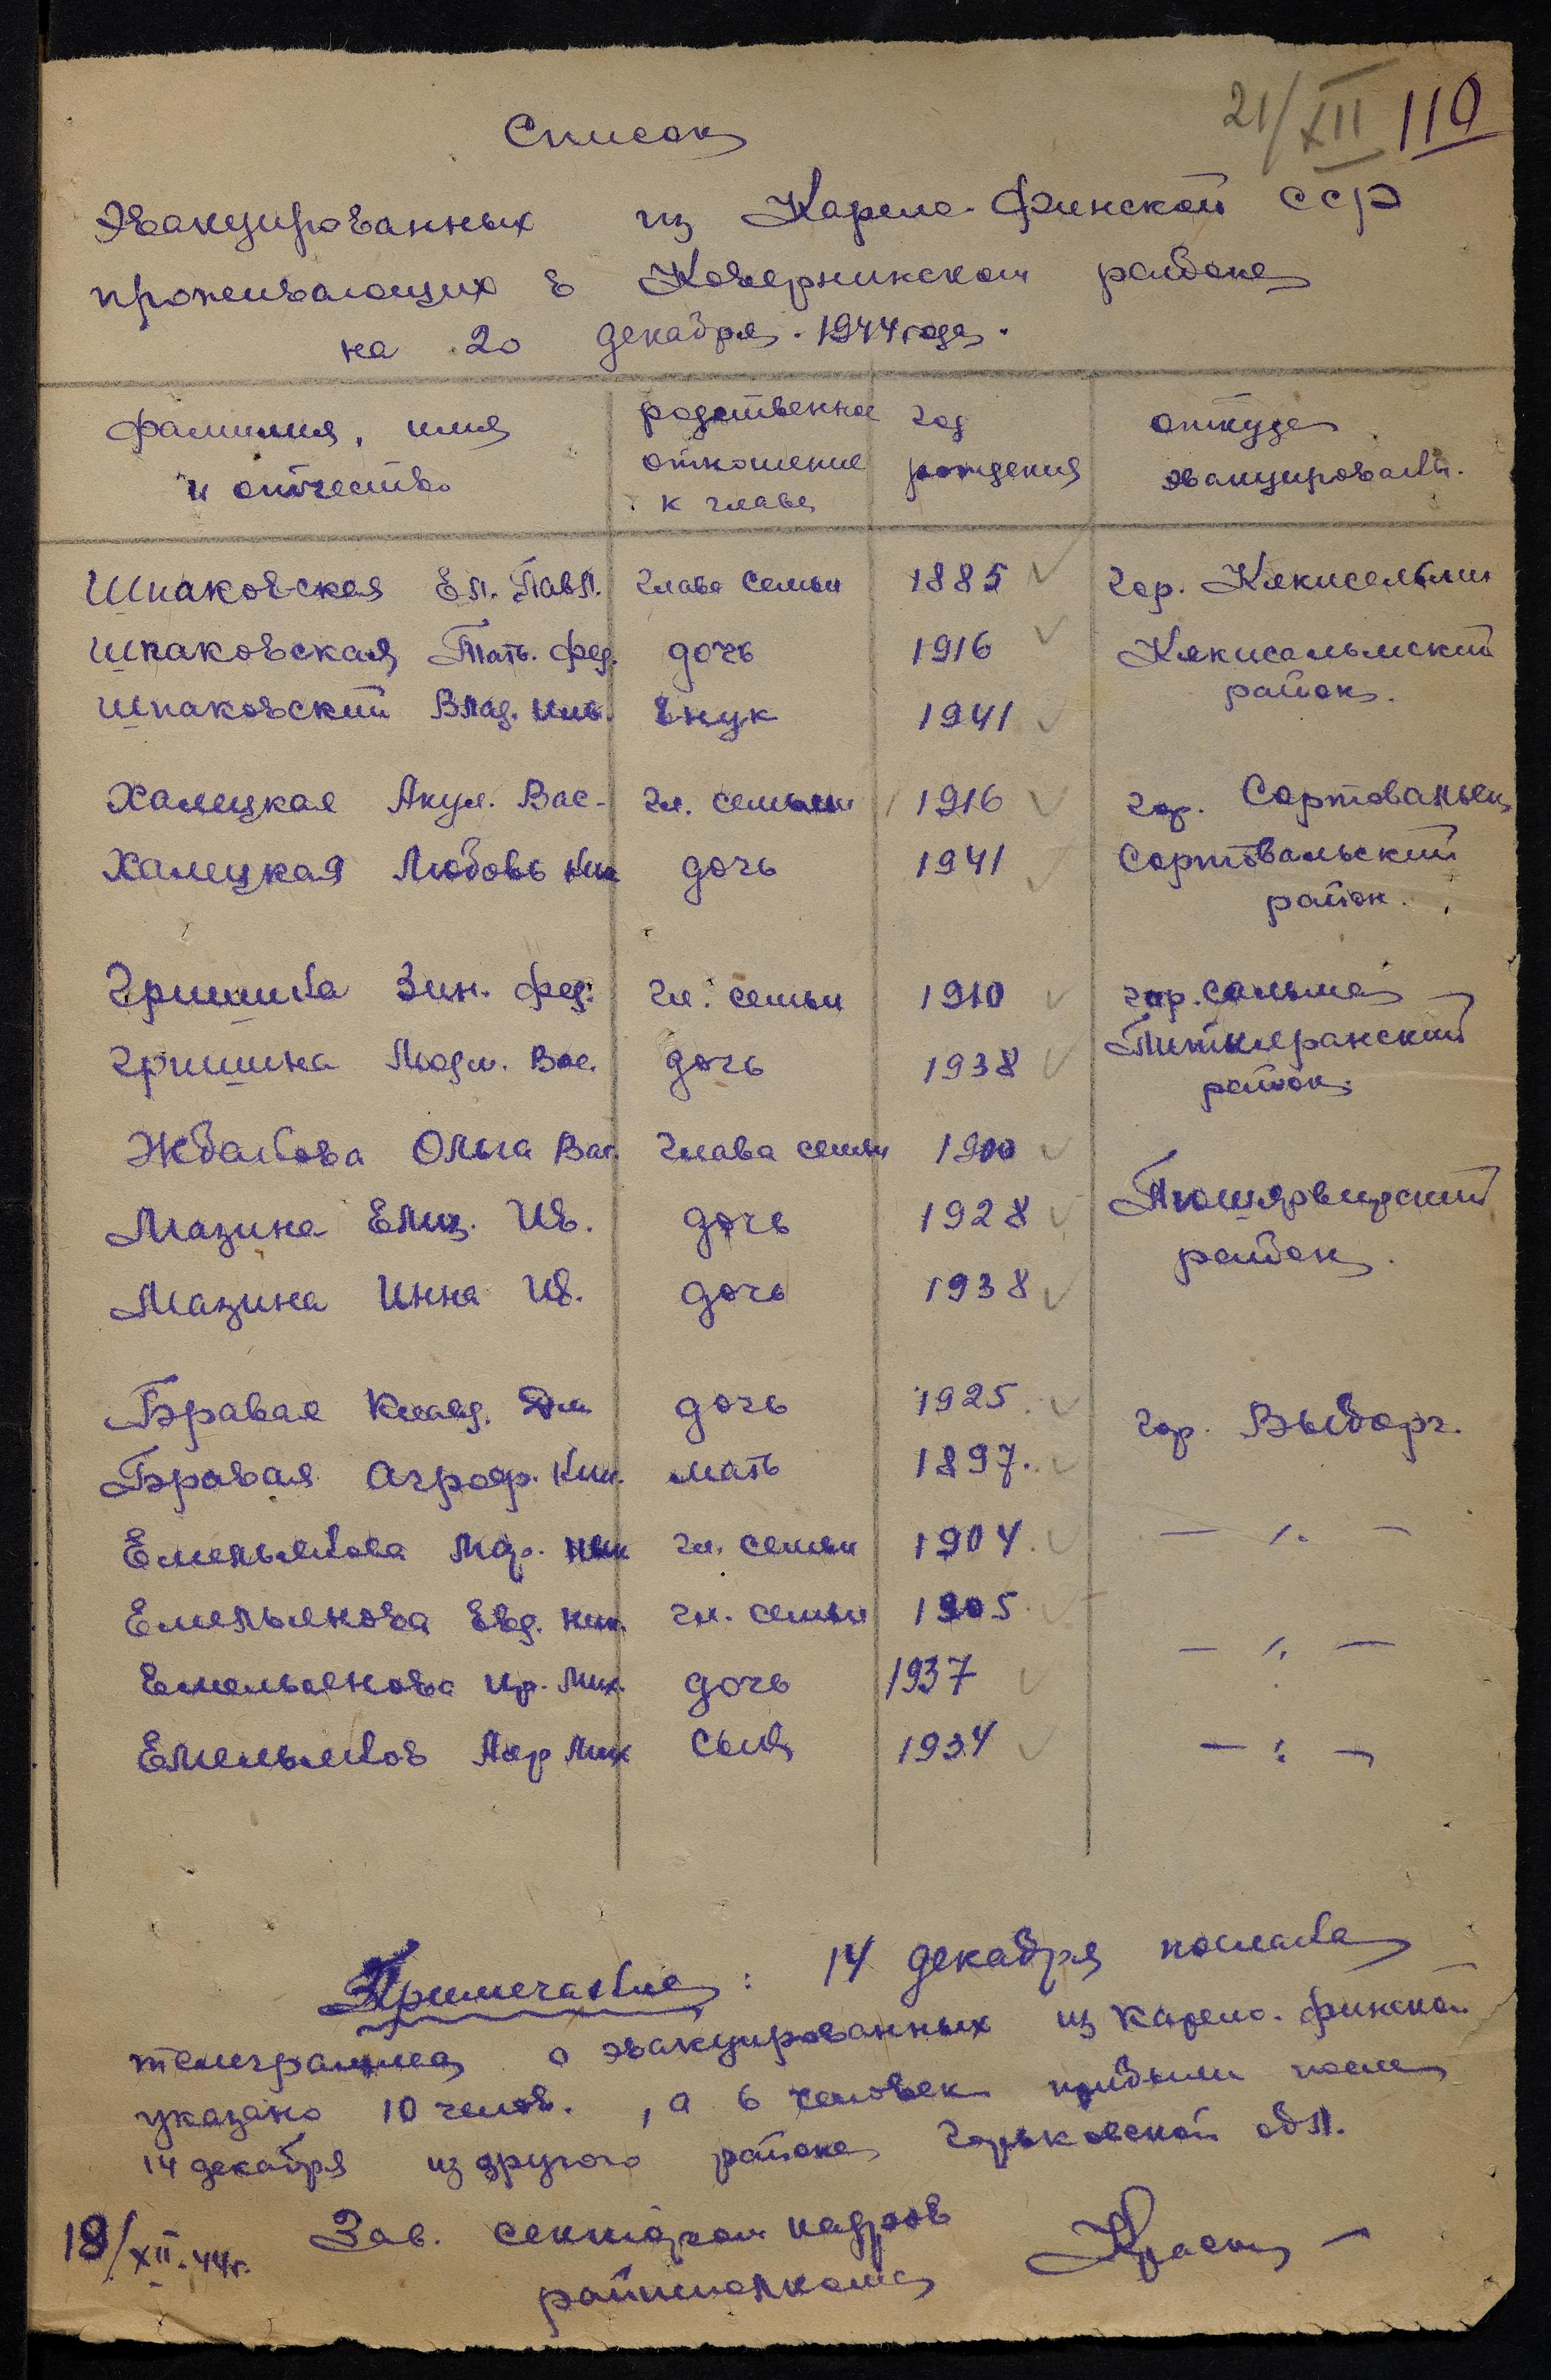 21/XII 110
Список
Эвакуированных из Карело-Финской ССР
проживающих в Ковернинском районе
на 20 декабря 1944 года.
фамилия, имя и отчество
родственное отношение к главе
год рождения
откуда эвакуировались.
Шпаковская Ел. Павл. глава семьи 1885 гор. Кякисальми
Шпаковская Тать. Фед. дочь 1916 Кякисальмский
Шпаковский Влад. Ник. внук 1941 район.
Халецкая Акул. Вас. гл. семьи 1916 гор. Сортовальск
Халецкая Любовь Ник дочь 1941 Сортовальский
район.
Гришина Зин. Фед. гл. семьи 1910 гор. Сальма
Гришина Людм. Вас. дочь 1938 Питкяранский
район.
Жбанова Ольга Вас. глава семьи 1900
Мазина Елиз. Ив. дочь 1928
район.
Мазина Инна Ив. дочь 1938
Бравая Клавд. дочь 1925. гор. Выборг.
Бравая Аграф. Ник. мать 1897.
Емельянова гл. семьи 1904. — ". —
Емельянова Евд. Ник. гл. семьи 1905 — ". —
Емельянова Ир. Мих. дочь 1937
Емельянов Мих сын 1934 — " —
Примечание: 14 декабря послана
телеграмма о эвакуированных из Карело-Финской
указано 10 челов., а 6 человек прибыли после
14 декабря из другого района Горьковской обл.
18/XII-44г. Зав. сектором кадров
райисполкома